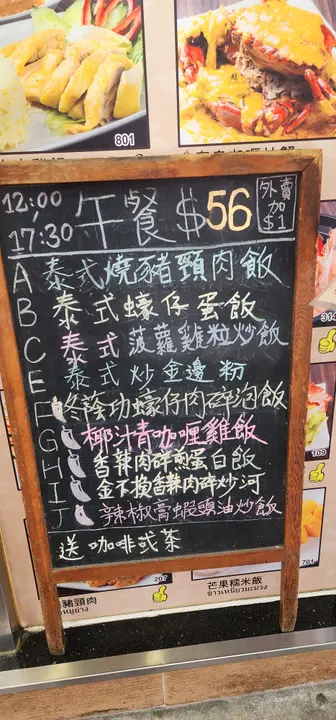 801
12:00
17:30
午餐 $56
外賣
加
$1
A 泰式燒豬頸肉飯
B 泰式蠔仔蛋飯
C 泰式菠蘿雞粒炒飯
E 泰式炒金邊粉
F 冬蔭功蠔仔肉碎泡飯
G 椰汁青咖哩雞飯
H 香辣肉碎煎蛋白飯
I 金不換香辣肉碎炒河
J 辣椒膏蝦頭油炒飯
送咖啡或茶
314
109
207
701
豬頸肉
芒果糯米飯
ข้าวเหนียวมะม่วง